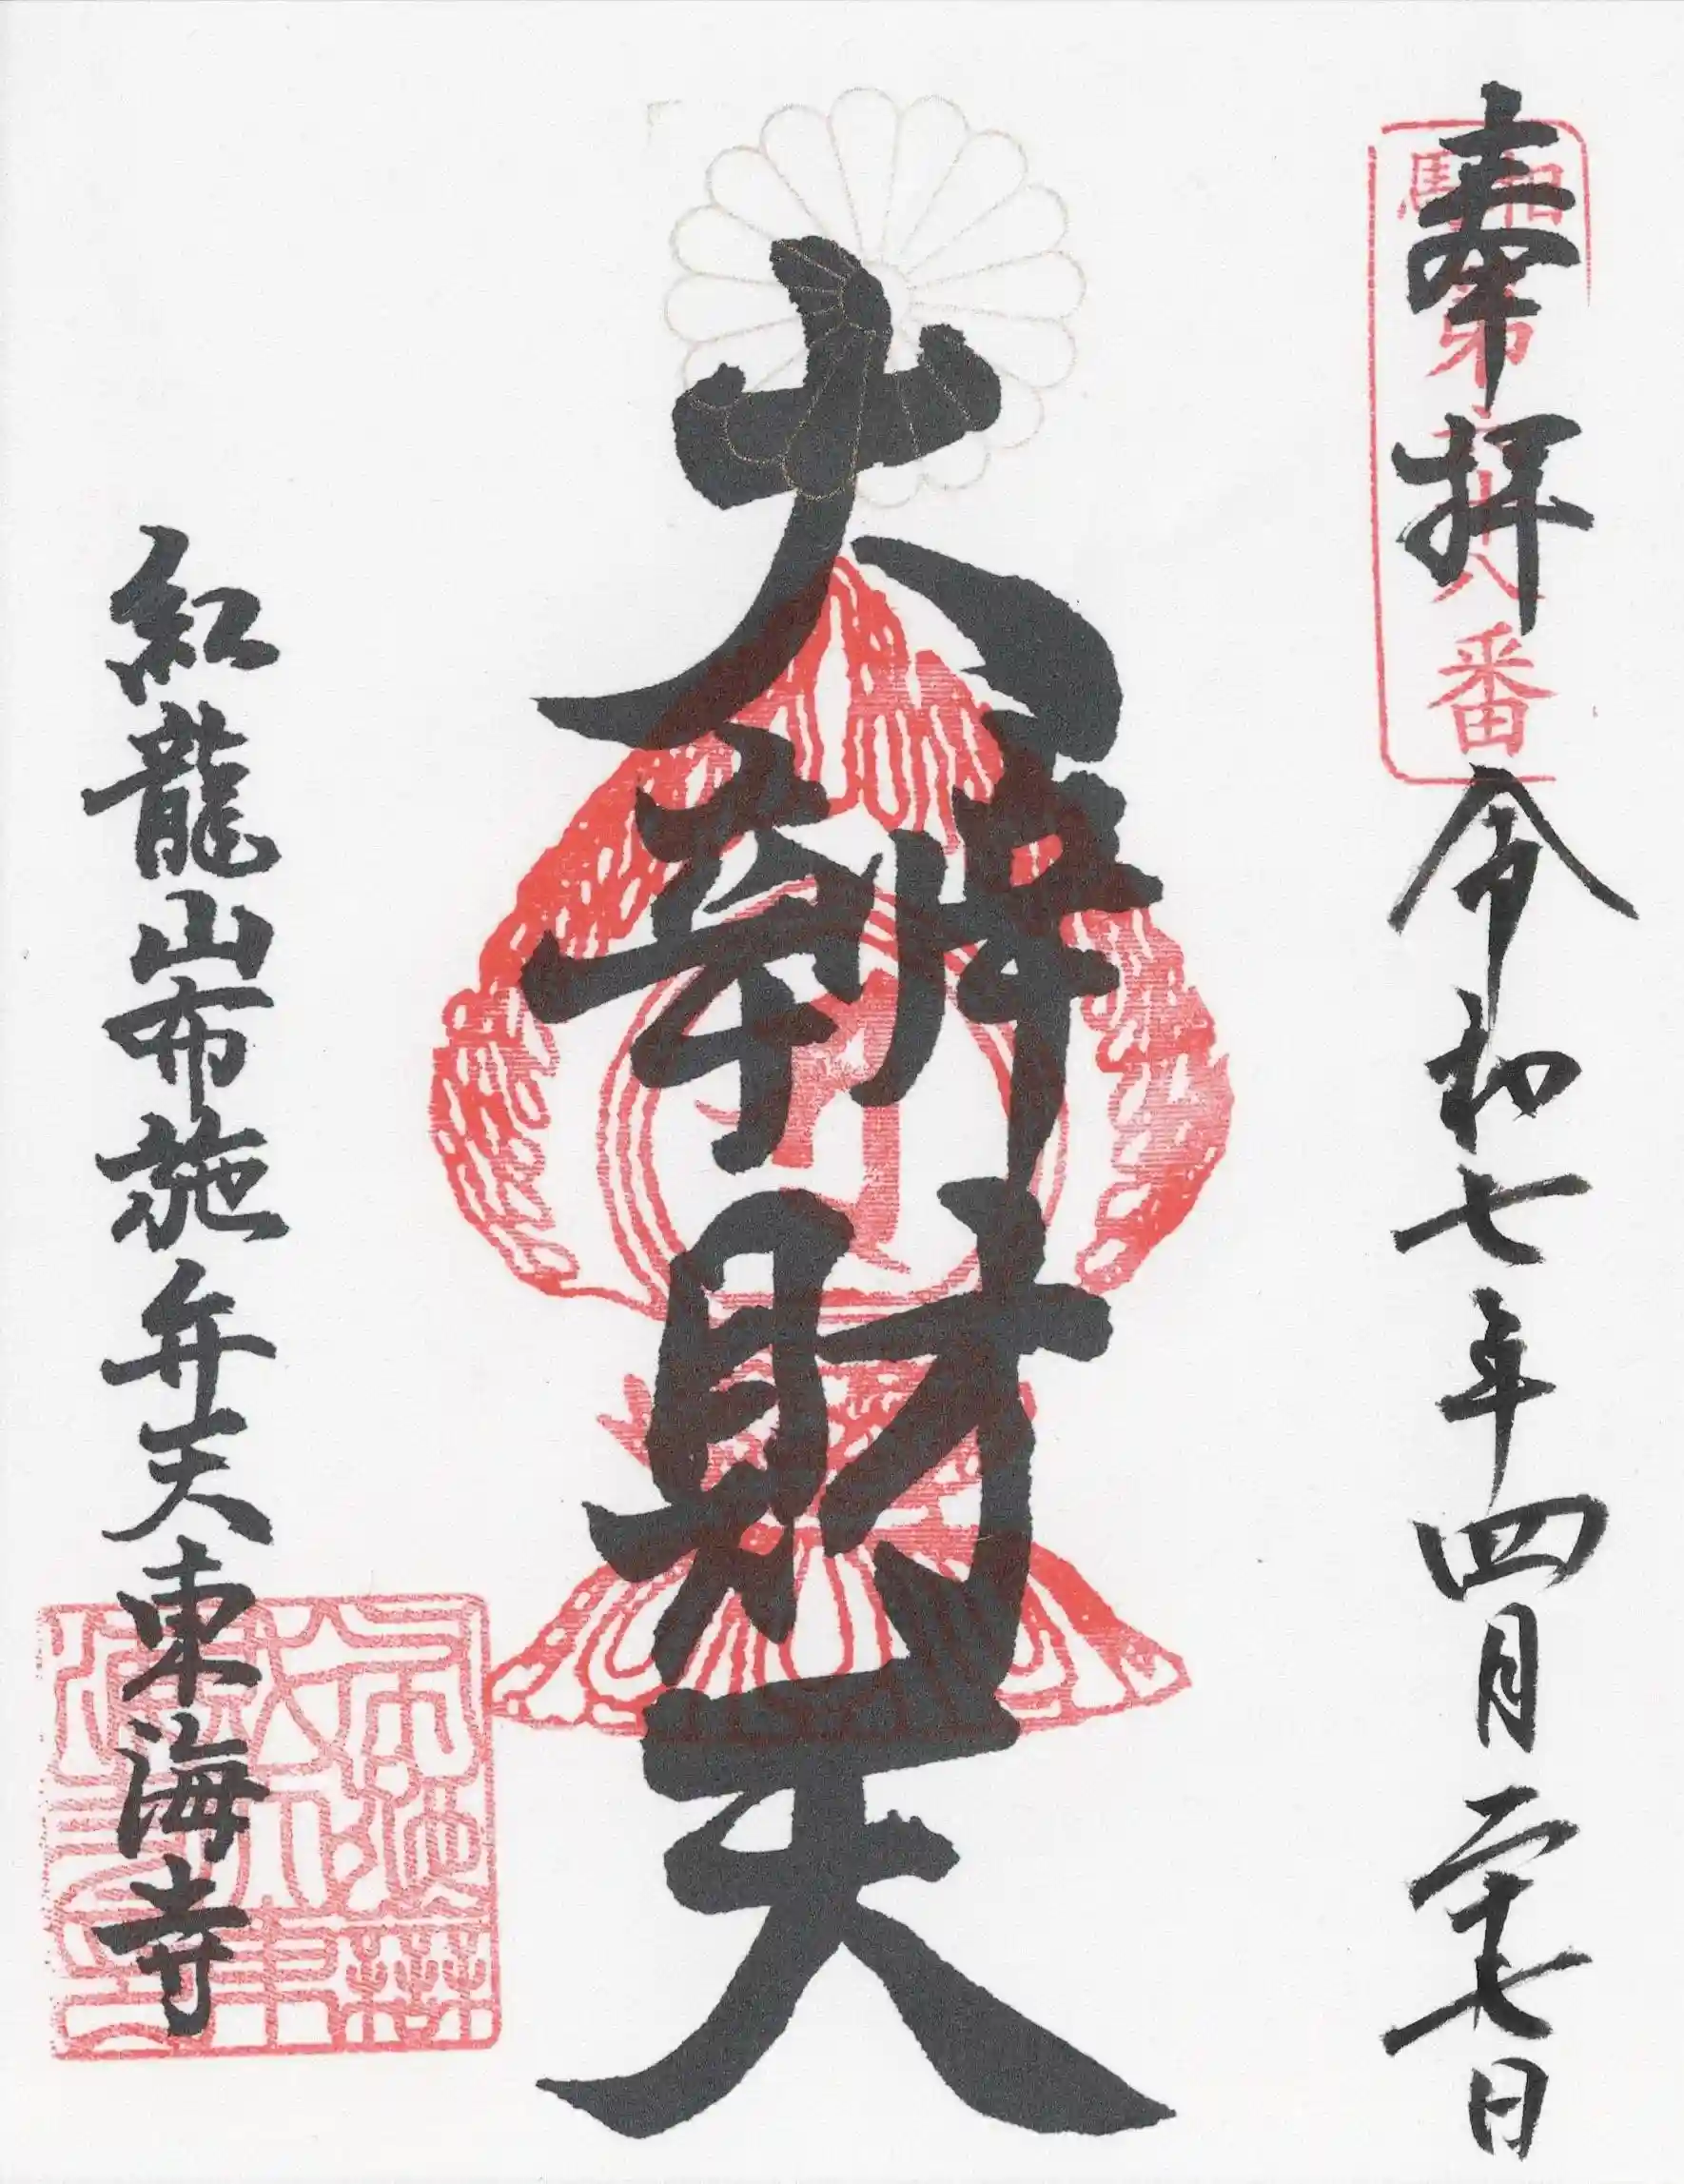 奉拝 令和七年四月二十七日
大辨財天
紅龍山布施弁天東海寺